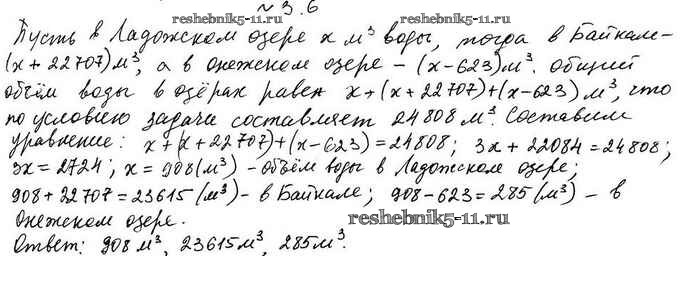 № 3.6
reshebnik5-11.ru
Пусть в Ладожском озере x м³ воды, тогда в Байкале-
(x + 22707) м³, а в онежском озере - (x-623) м³. общий
объём воды в озёрах равен x+(x+22707)+(x-623) м³, что
по условию задачи составляет 24808 м³. Составим
уравнение: x+(x+22707)+(x-623)=24808; 3x+22084=24808;
3x=2724; x=908(м³) - объём воды в Ладожском озере;
908+22707=23615(м³)- в Байкале; 908-623=285(м³) - в
Онежском озере.
reshebnik5-11.ru
Ответ: 908 м³, 23615м³, 285м³.